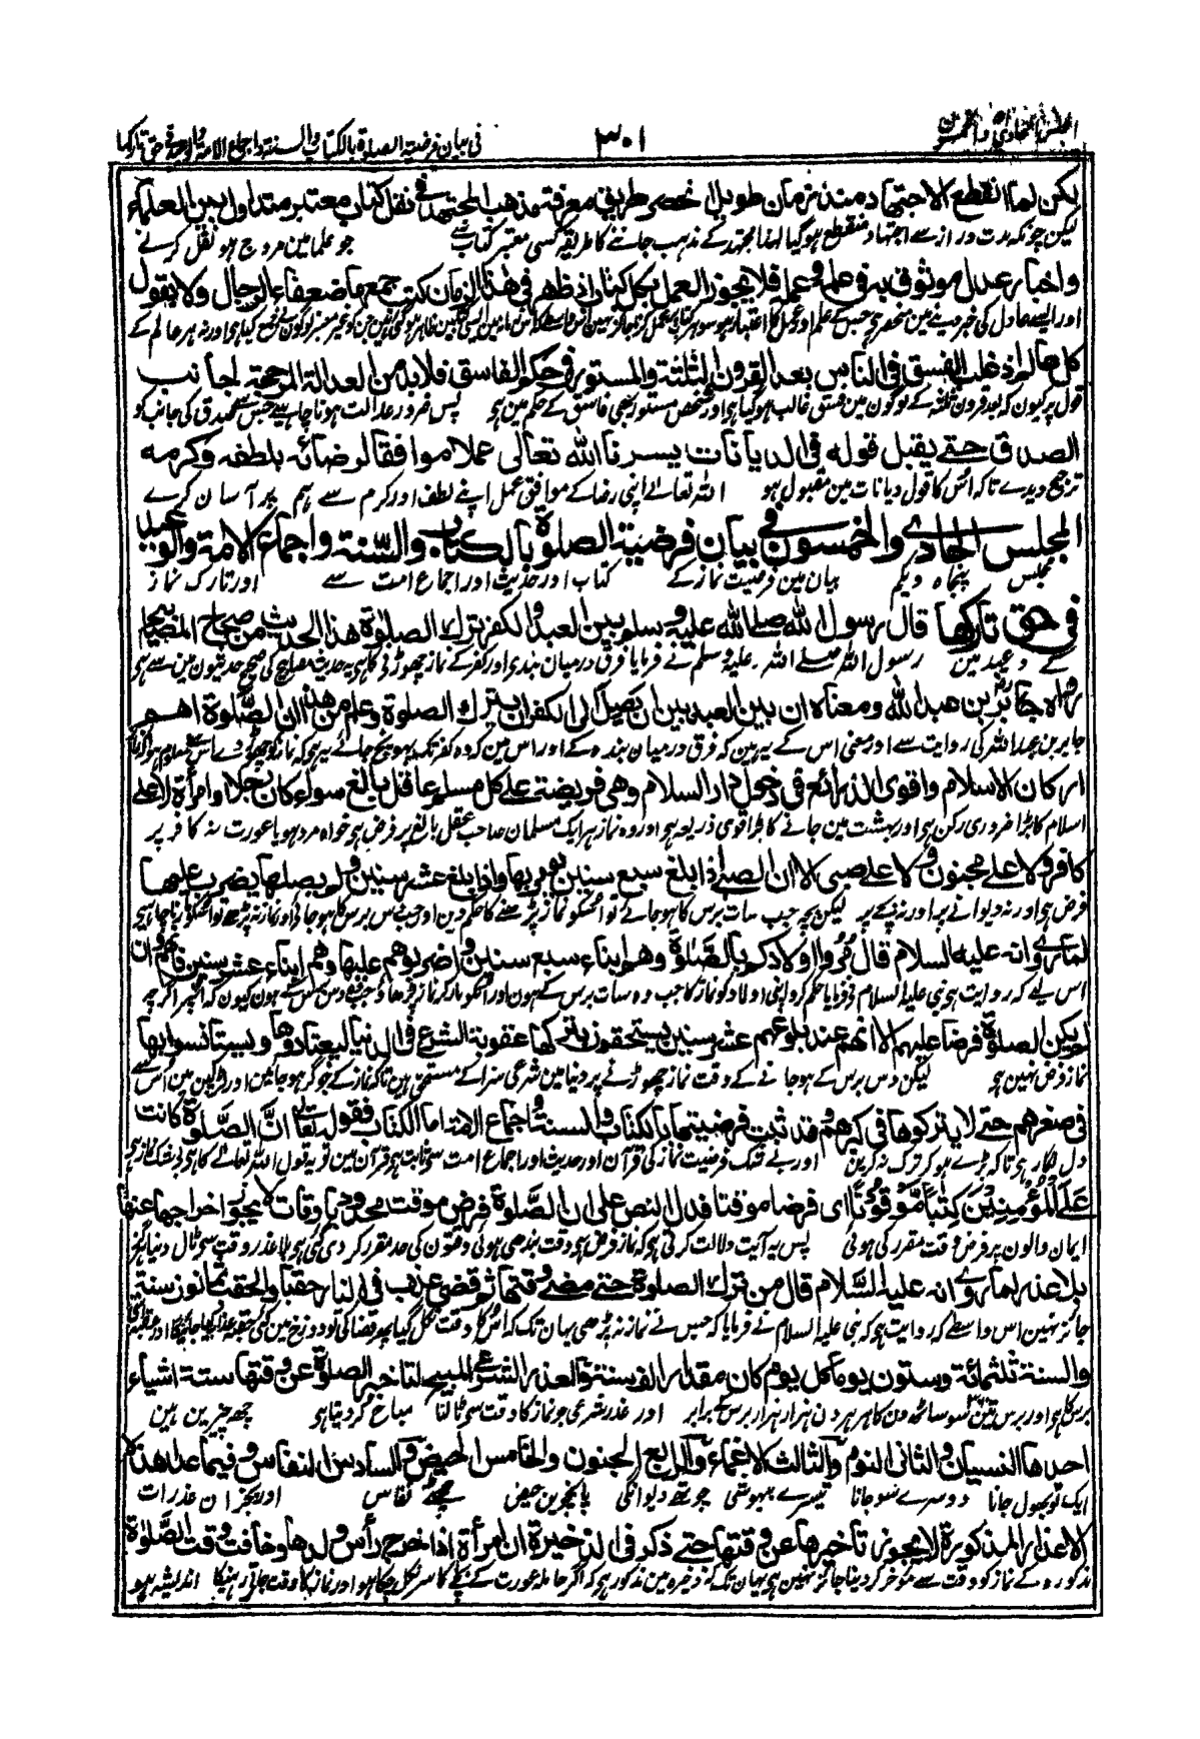 المجلس الحادی والخمسون
۳۰۱
فی بیان فرضیة الصلوة بالکتاب والسنة واجماع الامة والوعید فی حق تارکها
لکن لما انقطع الاجتهاد منذ زمان طویل انحصر طریق معرفة مذهب المجتهد فی نقل کتاب معتبر متداول بین العلماء
لیکن چونکہ مدت دراز سے اجتہاد منقطع ہوگیا لہذا مجتہد کے مذہب جاننے کا طریقہ کسی معتبر کتاب سے جو علما مین مروج ہو نقل کرنے
واخبار عدل موثوق به فی علمه وعمله فلا یجوز العمل بکل کتاب اذ ظهر فی هذا الزمان کتب جمعها ضعفاء الرجال ولا بقول
اور ایسے عادل کی خبر دینے مین منحصر ہی جسکے علم اور عمل کا اعتبار ہو سو ہر کتاب پر عمل کرنا جائز نہین اور نہ ہر عالم کے
کل عالم اذ غلب الفسق فی الناس بعد القرون الثلثة والمستور فی حکم الفاسق فلا بد من العدالة المرجحة لجانب
قول پر کیون کہ بعد قرون ثلثہ کے لوگون مین فسق غالب ہوگیا ہی اور شخص مستور بھی فاسق کے حکم مین ہی پس ضرور عدالت ہونا چاہیے جس سے صدق کی جانب کو
الصدق حتے یقبل قوله فی الدیانات یسر نا الله تعالی عملا موافقا لرضائه بلطفه وکرمه
ترجیح دیدے تاکہ اُس کا قول دیانات مین مقبول ہو اللہ تعالے اپنی رضا کے موافق عمل اپنے لطف اور کرم سے ہم پر آسان کرے
المجلس الحادی والخمسون فی بیان فرضیة الصلوة بالکتاب والسنة واجماع الامة والوعید
مجلس پنجاہ ویکم بیان مین فرضیت نماز کے کتاب اور حدیث اور اجماع امت سے اور تارک نماز
فی حق تارکها قال رسول الله صلے الله علیه وسلم بین العبد والکفر ترک الصلوة هذا الحدیث من صحاح المصابیح
کے وعید مین رسول اللہ صلے اللہ علیہ وسلم نے فرمایا فرق درمیان بندی اور کفر کے نماز چھوڑنی کا ہی یہ حدیث مصابیح کی صحیح حدیثون مین سے ہی
رواه جابر بن عبد الله ومعناه ان بین العبد وبین ان یصل الی الکفران یترک الصلوة وعلم من هذا ان الصلوة اهم
جابر بن عبد اللہ کی روایت سے اور معنی اس کے یہ ہین کہ فرق درمیان بندہ کے اور اس مین کہ وہ کفر تک پہونچ جائے یہ ہی کہ نماز کو چھوڑدے
ارکان الاسلام واقوی الذرائع فی دخول دار السلام وهی فریضة علے کل مسلم عاقل بالغ سواء کان رجلا او امرأة لا علی
اسلام کا بڑا ضروری رکن ہی اور بہشت مین جانے کا بڑا قوی ذریعہ ہی اور وہ نماز ہر ایک مسلمان صاحب عقل بالغ پر فرض ہی خواہ مرد ہو یا عورت نہ کافر پر
کافر ولا علے مجنون ولا علے صبی الا ان الصبی اذا بلغ سبع سنین یؤمر بها واذا بلغ عشر سنین ولم یصلها یضرب علیها
فرض ہی اور نہ دیوانے پر اور نہ بچے پر لیکن بچہ جب سات برس کا ہوجائے تو اُسکو نماز پڑھنے کا حکم دین اور جب دس برس کا ہوجائی اور نماز نہ پڑھے
لما روی انه علیه السلام قال مروا اولادکم بالصلوة وهم ابناء سبع سنین واضربوهم علیها وهم ابناء عشر سنین فانهم وان
اس لیے کہ روایت ہی نبی علیہ السلام نے فرمایا حکم کرو اپنی اولاد کو نماز کا جب وہ سات برس کے ہون اور اُنکو مار کر نماز پڑھاؤ جب وہ دس برس کے ہون کیون کہ اگرچہ
لم یکن الصلوة فرضا علیهم الا انهم عند بلوغهم عشر سنین یستحقون بترکها عقوبة الشرع فی الدنیا لیعتادوها ویستانسوا بها
نماز فرض نہین ہی لیکن دس برس کے ہوجانے کے وقت نماز چھوڑنے پر دنیا مین شرعی سزا کے مستحق ہین تاکہ نماز کے خوگر ہوجاوین اور لڑکپن مین اُس سے
فی صغرهم حتے لا یترکوها فی کبرهم قد ثبت فرضیتها بالکتاب والسنة واجماع الامة اما الکتاب فقوله تعالی ان الصلوة کانت
دل لگا رہی تاکہ بڑے ہوکر ترک نہ کرین اور بے شک فرضیت نماز کی قرآن اور حدیث اور اجماع امت سے ثابت ہی قرآن مین تو یہ قول اللہ تعالے کا ہی
علی المؤمنین کتابا موقوتا ای فرضا موقتا فدل النص علی ان الصلوة فرض موقت محدود باوقات لا یجوز اخراجها عنها
ایمان والون پر فرض وقت مقرر کی ہوئی پس یہ آیت دلالت کرتی ہی کہ نماز فرض ہی وقت بندھی ہوئی وقتون کی حد مقرر کردی گئی ہی بلا عذر وقت سی ٹال دینا
بلا عذر لما روی انه علیه السلام قال من ترک الصلوة حتے مضی وقتها ثم قضی عذب فی النار حقبا والحقب ثمانون سنة
جائز نہین اس واسطے کہ روایت ہی کہ نبی علیہ السلام نے فرمایا کہ جس نے نماز نہ پڑھی یہان تک کہ اُس کا وقت نکل گیا پھر قضا کی تو دوزخ مین
والسنة ثلثمائة وستون یوما کل یوم کان مقداره الف سنة والعذر الشرعی المبیح لتاخیر الصلوة عن وقتها ستة اشیاء
برس کا ہی اور برس تین سو ساٹھ دن کا ہر ہر دن ہزار ہزار برس کے برابر اور عذر شرعی جو نماز کا وقت سی ٹالنا مباح کردیتا ہو چھہ چیزین ہین
احدها النسیان والثانی النوم والثالث الاغماء والرابع الجنون والخامس الحیض والسادس النفاس وفیما عدا هذه
ایک تو بھول جانا دوسرے سوجانا تیسرے بیہوشی چوتھے دیوانگی پانچوین حیض چھٹے نفاس اور بجز ان عذرات
الاعذار المذکورة لا یجوز تاخیرها عن وقتها حتے ذکر فی الذخیرة ان امرأة اذا خرج رأس ولدها وخافت وقت الصلوة
مذکورہ کے نماز کو وقت سے مؤخر کردینا جائز نہین ہی یہان تک کہ ذخیرہ مین مذکور ہی کہ اگر حاملہ عورت کے بچے کا سر نکل چکا ہو اور نماز کا وقت جاتی رہنیکا اندیشہ ہو